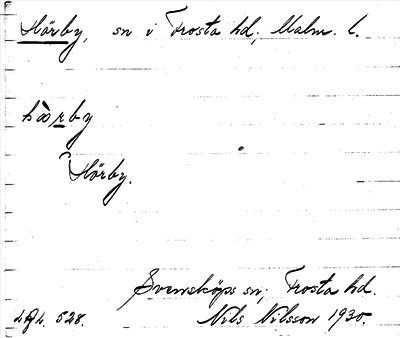 Hörby, sn i Frosta hd, Malm. l.
hö̀rby
Hörby.
Svensköps sn, Frosta hd.
528. Nils Nilsson 1930.